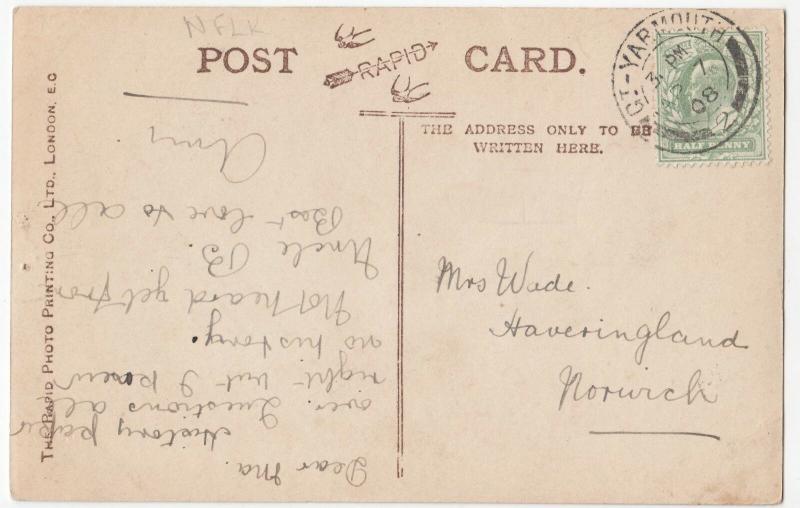 NFLK
POST CARD.
RAPID
THE ADDRESS ONLY TO BE
WRITTEN HERE.
GT-YARMOUTH
3 PM
1
08
HALF PENNY
Mrs Wade.
Haveringland
Norwich
Dear Ma.
History paper
over. Questions all
right but I knew
no history.
Not heard yet from
Uncle B.
Best love to all
THE RAPID PHOTO PRINTING CO., LTD., LONDON, E.C